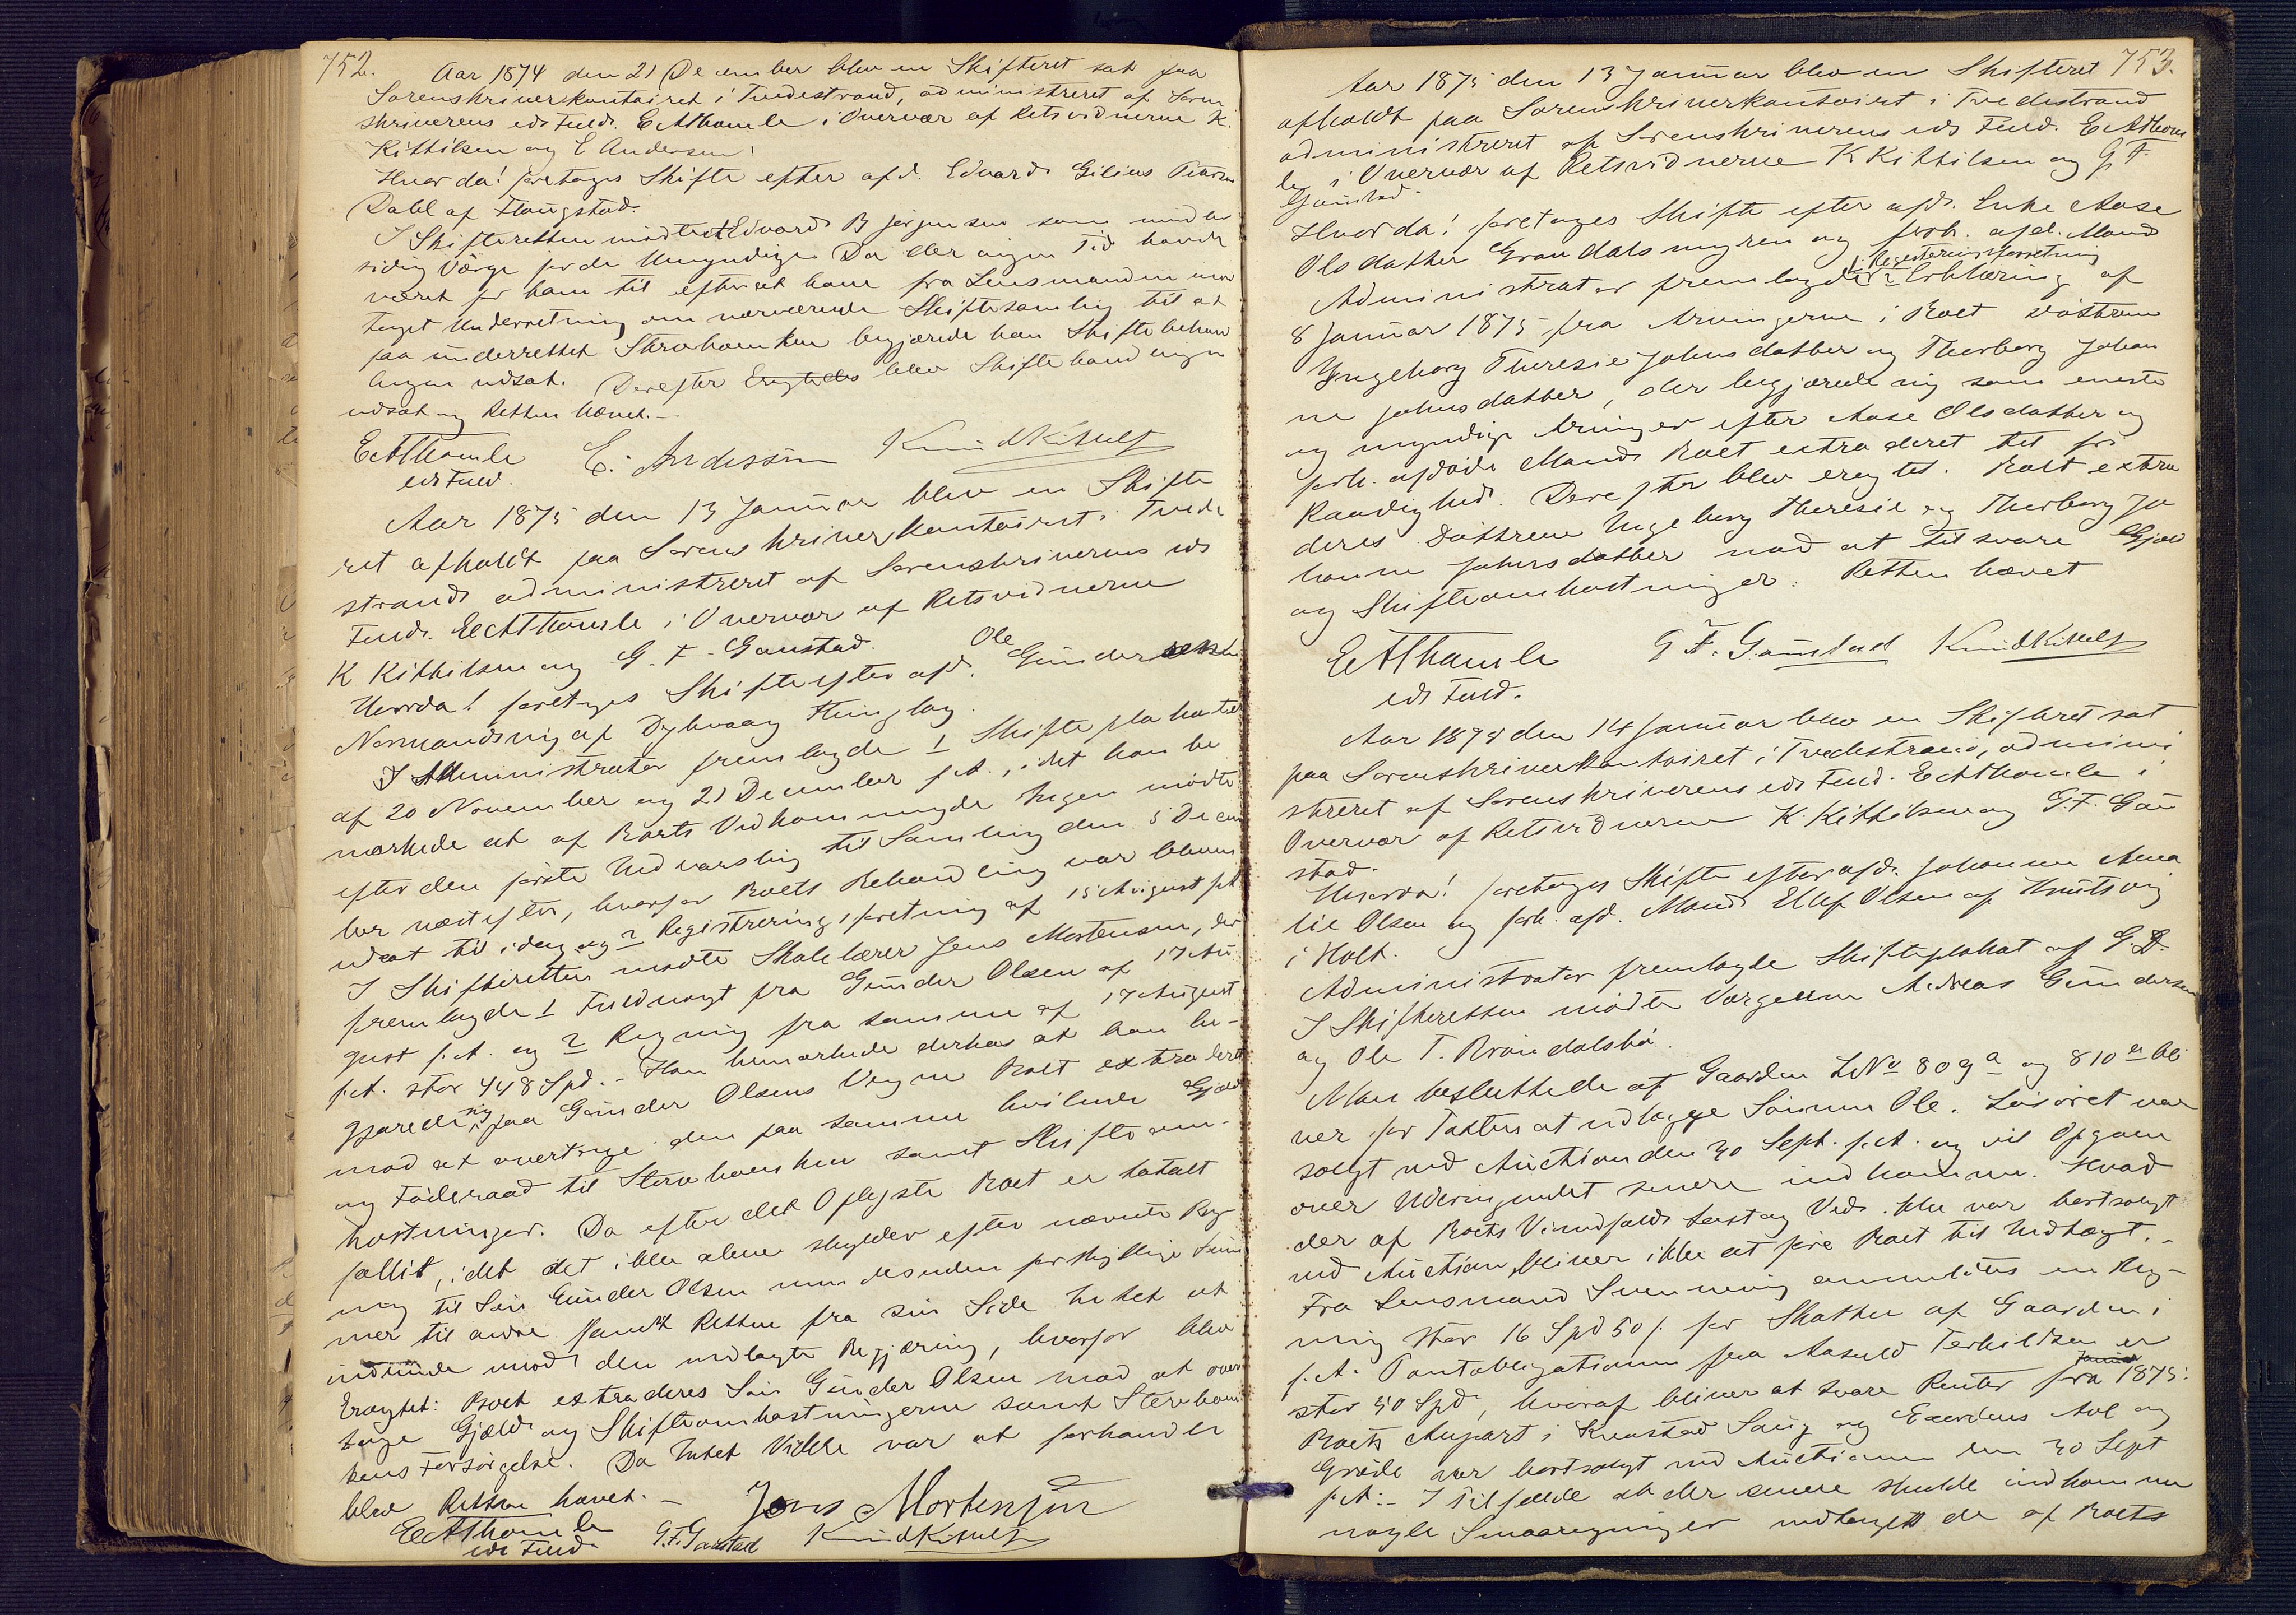 752.
Aar 1874 den 21 December blev en Skifteret sat paa
Sorenskriverkontoiret i Tvedestrand, administreret af Soren
skriverens eds Fuldm. E A Thomle i Overvær af Retsvidnerne K.
Kittilsen og E Andersen.
Hvorda! foretoges Skifte efter afd. Edvard Gilius
Dahl af Flaugstad.
I Skifteretten mødte Edvard B Jørgensen som
sidig Værge for de Umyndige. Da der ingen Tid havde
været for ham til efterat have fra Lensmanden mod
taget Underretning om nærværende Skiftesamling til at
faa underrettet Stervboenken begjærede han Skiftebehand
lingen udsat. Derefter Eragtedes blev Skiftehandlingen
udsat og Retten hævet.-
E A Thomle E. Anderssen Knud Kittilsen
eds Fuld.
Aar 1875 den 13 Januar blev en Skifte
ret afholdt paa Sorenskriverkontoiret i Tvede
strand administreret af Sorenskriverens eds
Fuldm. E A Thomle i Overvær af Retsvidnerne
K Kittilsen og G. F. Gaustad.
Hvorda! foretoges Skifte efter afd. Ole Gunder
Normandsvig af Dybvaag Thinglag.
Administrator fremlagde 1 Skifteplakater
af 20 November og 21 December f.A., idet han be
mærkede at af Boets Vedkommende Ingen mødte
efter den første Indvarsling til Samling den 5 Decem
ber næstefter, hvorfor Boets Behandling var bleven
udsat til idag og 2 Registreringsforretning af 15 August f.A.
I Skifteretten mødte Skolelærer Jens Mortensen, der
fremlagde 1 Fuldmagt fra Gunder Olsen af 17 Au
gust f.A. og 2 Regning fra samme af 17 August
f.A. stor 448 Spd.- Han bemærkede derhos at han be-
gjærede sig paa Gunder Olsens Vegne Boet extraderet
mod at overtage den paa samme hvilende Gjæld
og Føderaad til Stervboenken samt Skifteom-
kostninger. Da efter det Oplyste Boet er totalt
fallit, idet det ikke alene skylder efter nævnte Reg-
ning til Søn Gunder Olsen men desuden forskjellige Sum
mer til andre fandt Retten fra sin Side Intet at
indvende mod den nedlagte Begjæring, hvorfor blev
Eragtet: Boet extraderes Søn Gunder Olsen mod at over
tage Gjæld og Skifteomkostningerne samt Stervboen
kens Forsørgelse. Da Intet Videre var at forhandle
blev Retten hævet.-
Jens Mortensen
E A Thomle G. F. Gaustad Knud Kittilsen
eds Fuld.
753.
Aar 1875 den 13 Januar blev en Skifteret
afholdt paa Sorenskriverkontoiret i Tvedestrand
administreret af Sorenskriverens eds Fuld. E A Thom
le i Overvær af Retsvidnerne K Kittilsen og G. F.
Gaustad.
Hvorda! foretoges Skifte efter afd. Enke Aase
Olsdatter Grandalsmyren og forh. afd. Mand
Administrator fremlagde 1 Registreringsforretning 2 Erklæring af
8 Januar 1875 fra Arvingerne i Boet Døttrene
Ingeborg Theresie Johnsdatter og Thorborg Johan
ne Johnsdatter, der begjærede sig som eneste
og myndige Arvinger efter Aase Olsdatter og
forh. afdøde Mands Boet extraderet til fri
Raadighed. Derefter blev eragtet. Boet extra
deres Døttrene Ingeborg Theresie og Thorborg Jo
hanne Johnsdatter mod at tilsvare Gjæld
og Skifteomkostninger. Retten hævet
E A Thomle G. F. Gaustad Knud Kittilsen
eds Fuld.
Aar 1875 den 14 Januar blev en Skifteret sat
paa Sorenskriverkontoiret i Tvedestrand, admini
streret af Sorenskriverens eds Fuld. E A Thomle i
Overvær af Retsvidnerne K. Kittilsen og G. F. Gau
stad.
Hvorda! foretoges Skifte efter afd. Johanne Ama
lie Olsen og forh. afd. Mand Ellef Olsen af Knutsvig
i Holt.
Administrator fremlagde Skifteplakat af G. D.
I Skifteretten mødte Værgerne Andreas Gundersen
og Ole T. Brøndalsbø.
Man besluttede at Gaarden L No 809 a og 810 bli
ver for Taxten at udlægge Sønnen Ole. Løsøret var
solgt ved Auction den 30 Sept. f.A. og vil Opgave
over Udbringendet senere indkomme. Hvad
der af Boets Vindfalds Last og Ved ikke var bortsolgt
ved Auction, bliver ikke at føre Boet til Indtægt.-
Fra Lensmand Svenning anmeldtes en Reg-
ning stor 16 Spd 50 ß for Skatter af Gaarden i
f.A. Pantobligationen fra Aasuld Terkildsen er
stor 50 Spd, hvoraf bliver at svare Renter fra 1875.
Boets Anpart i Knastad Saug og Gaardens Avl og
Grøde var bortsolgt ved Auctionen den 30 Sept
f.A.- I Tilfælde at der senere skulde indkomme
nogle Smaaregninger modtages de af Boets